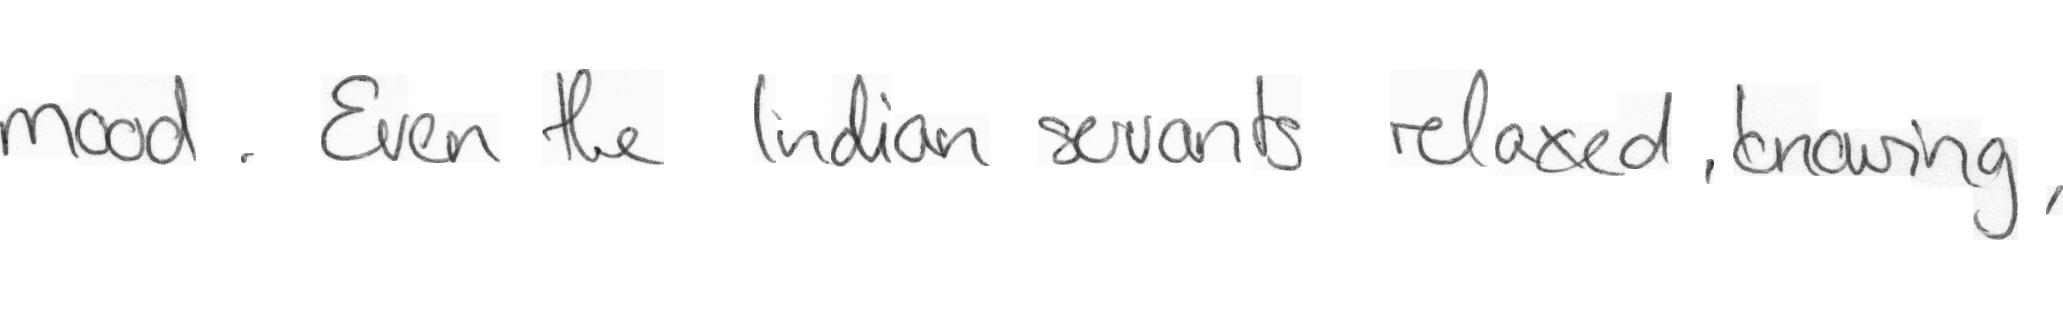 mood. Even the Indian servants relaxed, knowing,